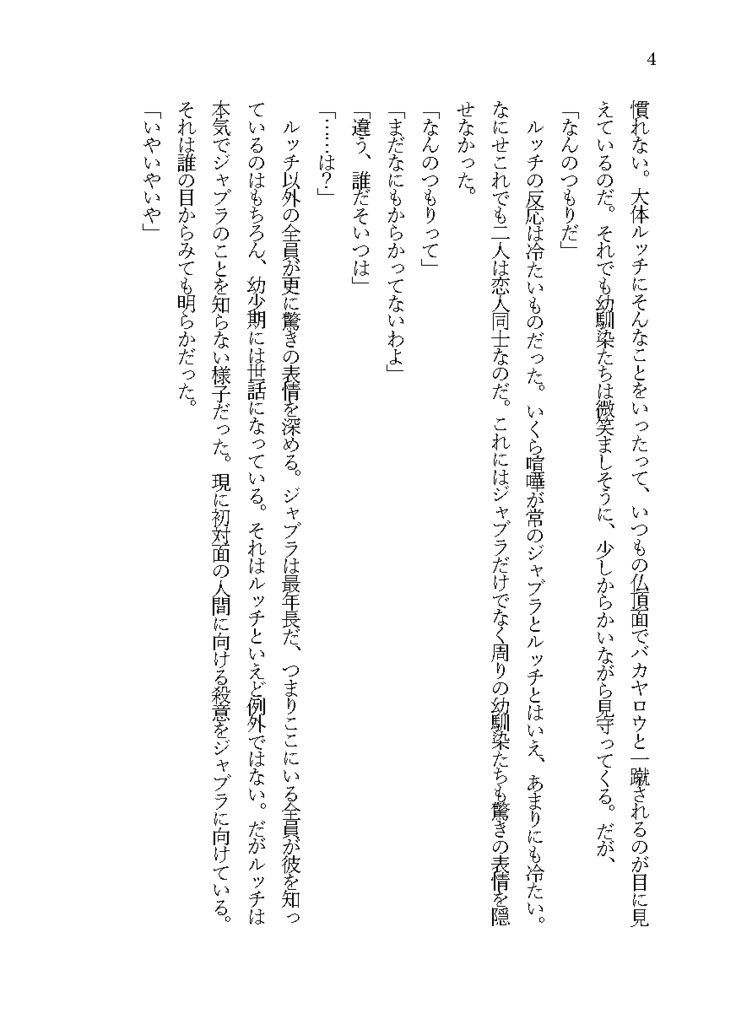 4
慣れない。大体ルッチにそんなことをいったって、いつもの仏頂面でバカヤロウと一蹴されるのが目に見
えているのだ。それでも幼馴染たちは微笑ましそうに、少しからかいながら見守ってくる。だが、
「なんのつもりだ」
　ルッチの反応は冷たいものだった。いくら喧嘩が常のジャブラとルッチとはいえ、あまりにも冷たい。
なにせこれでも二人は恋人同士なのだ。これにはジャブラだけでなく周りの幼馴染たちも驚きの表情を隠
せなかった。
「なんのつもりって」
「まだなにもからかってないわよ」
「違う、誰だそいつは」
「……は？」
　ルッチ以外の全員が更に驚きの表情を深める。ジャブラは最年長だ、つまりここにいる全員が彼を知っ
ているのはもちろん、幼少期には世話になっている。それはルッチといえど例外ではない。だがルッチは
本気でジャブラのことを知らない様子だった。現に初対面の人間に向ける殺意をジャブラに向けている。
それは誰の目からみても明らかだった。
「いやいやいや」